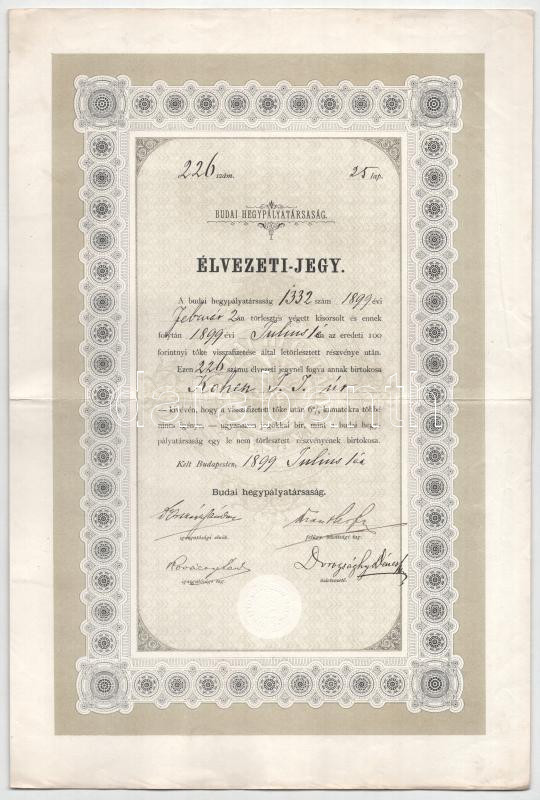 226 szám. 25 lap.
BUDAI HEGYPÁLYATÁRSASÁG.
ÉLVEZETI-JEGY.
A budai hegypályatársaság 1332 szám 1899 évi
Februar 2án törlesztés végett kisorsolt és ennek
folytán 1899 évi Julius 1én az eredeti 100
forintnyi tőke visszafizetése által letörlesztett részvénye után.
Ezen 226 számu élvezeti jegynél fogva annak birtokosa
Kohen J. J. úr
— kivévén, hogy a visszafizetett tőke után 6% kamatokra többé
nincs igénye, — ugyanazon jogokkal bir, mint a budai hegy-
pályatársaság egy le nem törlesztett részvényének birtokosa.
Kelt Budapesten, 1899 Julius 1én
Budai hegypályatársaság.
igazgatósági elnök. felügy. bizottsági tag.
Dorozsághy Dénes
igazgatósági tag. üzletvezető.
darabanth